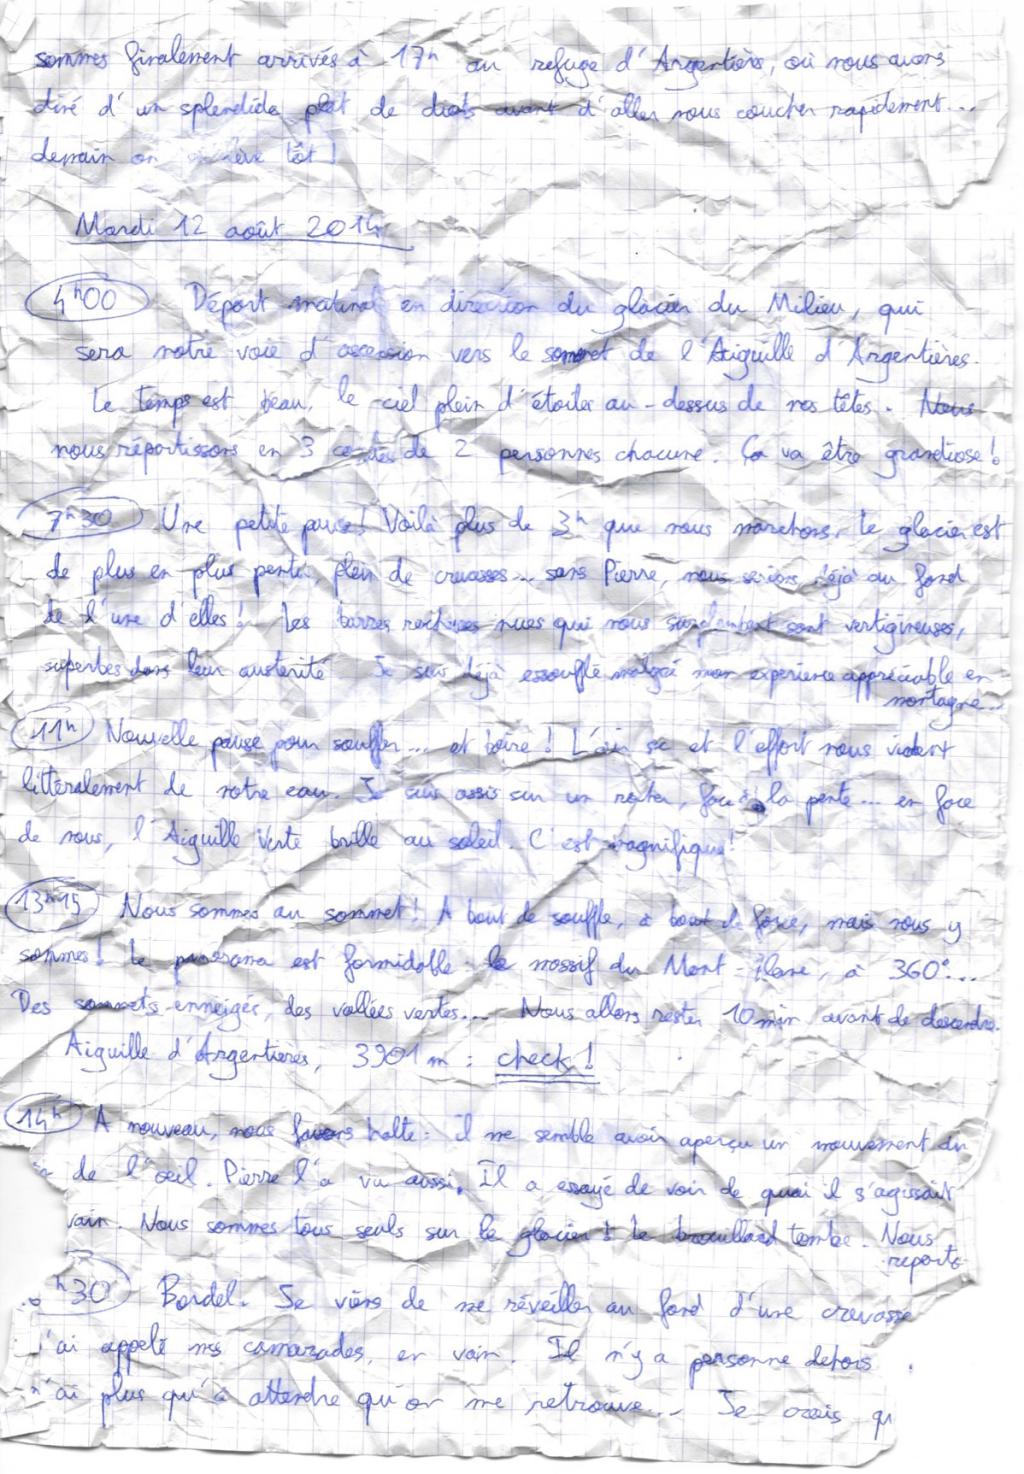 sommes finalement arrivés à 17h au refuge d'Argentière, où nous avons
diné d'un splendide plat de diots avant d'aller nous coucher rapidement...
demain on se lève tôt !
Mardi 12 août 2014
4h00 Départ matinal en direction du glacier du Milieu, qui
sera notre voie d'ascension vers le sommet de l'Aiguille d'Argentières.
Le temps est beau, le ciel plein d'étoiles au-dessus de nos têtes. Nous
nous répartissons en 3 cordées de 2 personnes chacune. Ça va être grandiose !
7h30 Une petite pause ! Voilà plus de 3h que nous marchons, le glacier est
de plus en plus pentu, plein de crevasses... sans Pierre, nous serions déjà au fond
de l'une d'elles ! Les barres rocheuses nues qui nous surplombent sont vertigineuses,
superbes dans leur austérité. Je suis déjà essoufflé malgré mon expérience appréciable en
montagne...
11h Nouvelle pause pour souffler... et boire ! L'air sec et l'effort nous vident
littéralement de notre eau. Je suis assis sur un rocher, face à la pente... en face
de nous, l'Aiguille Verte brille au soleil. C'est magnifique !
13h15 Nous sommes au sommet ! A bout de souffle, à bout de force, mais nous y
sommes ! Le panorama est formidable : le massif du Mont-Blanc, à 360°...
Des sommets enneigés, des vallées vertes... Nous allons rester 10 min avant de descendre.
Aiguille d'Argentières, 3901 m : check !
14h A nouveau, nous faisons halte : il me semble avoir aperçu un mouvement du
de l'oeil. Pierre l'a vu aussi. Il a essayé de voir de quoi il s'agissait
vain. Nous sommes tous seuls sur le glacier & le brouillard tombe. Nous
reparto
h30 Bordel. Je viens de me réveiller au fond d'une crevasse
j'ai appelé mes camarades, en vain. Il n'y a personne dehors.
n'ai plus qu'à attendre qu'on me retrouve... Je crois qu